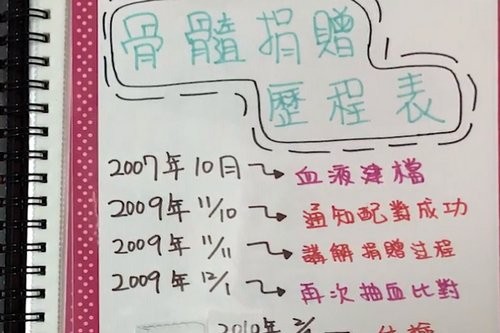 骨髓捐贈
歷程表
2007年10月→血液建檔
2009年11/10→通知配對成功
2009年11/11→講解捐贈过程
2009年12/1→再次抽血比對
2010年